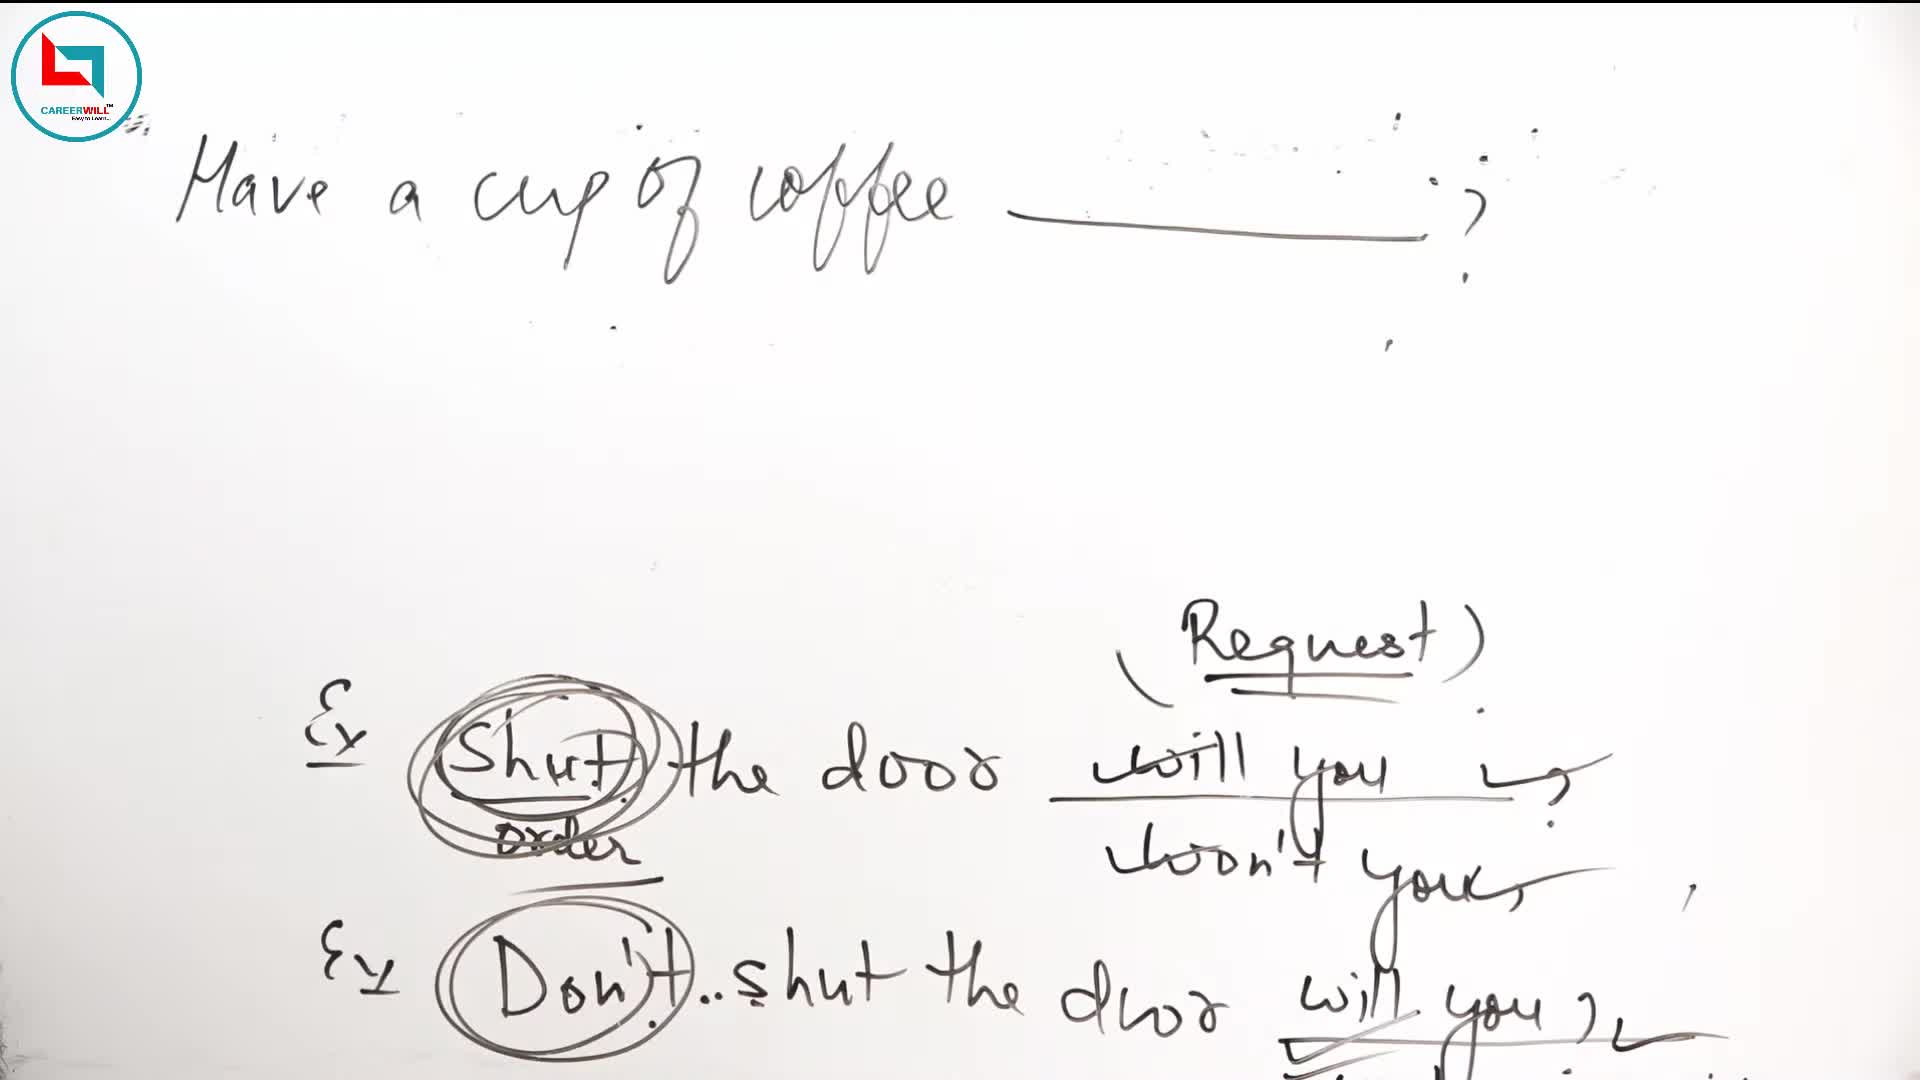 CAREERWILL™
Easy to Learn...
Have a cup of coffee ________?
(Request)
Ex Shut the door will you ?
order
won't you?
Ex Don't..shut the door will you?